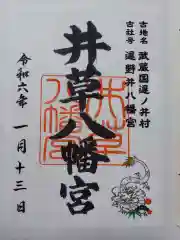 古地名 武蔵国遅ノ井村
古社号 遅野井八幡宮
井草八幡宮
令和六年 一月十三日